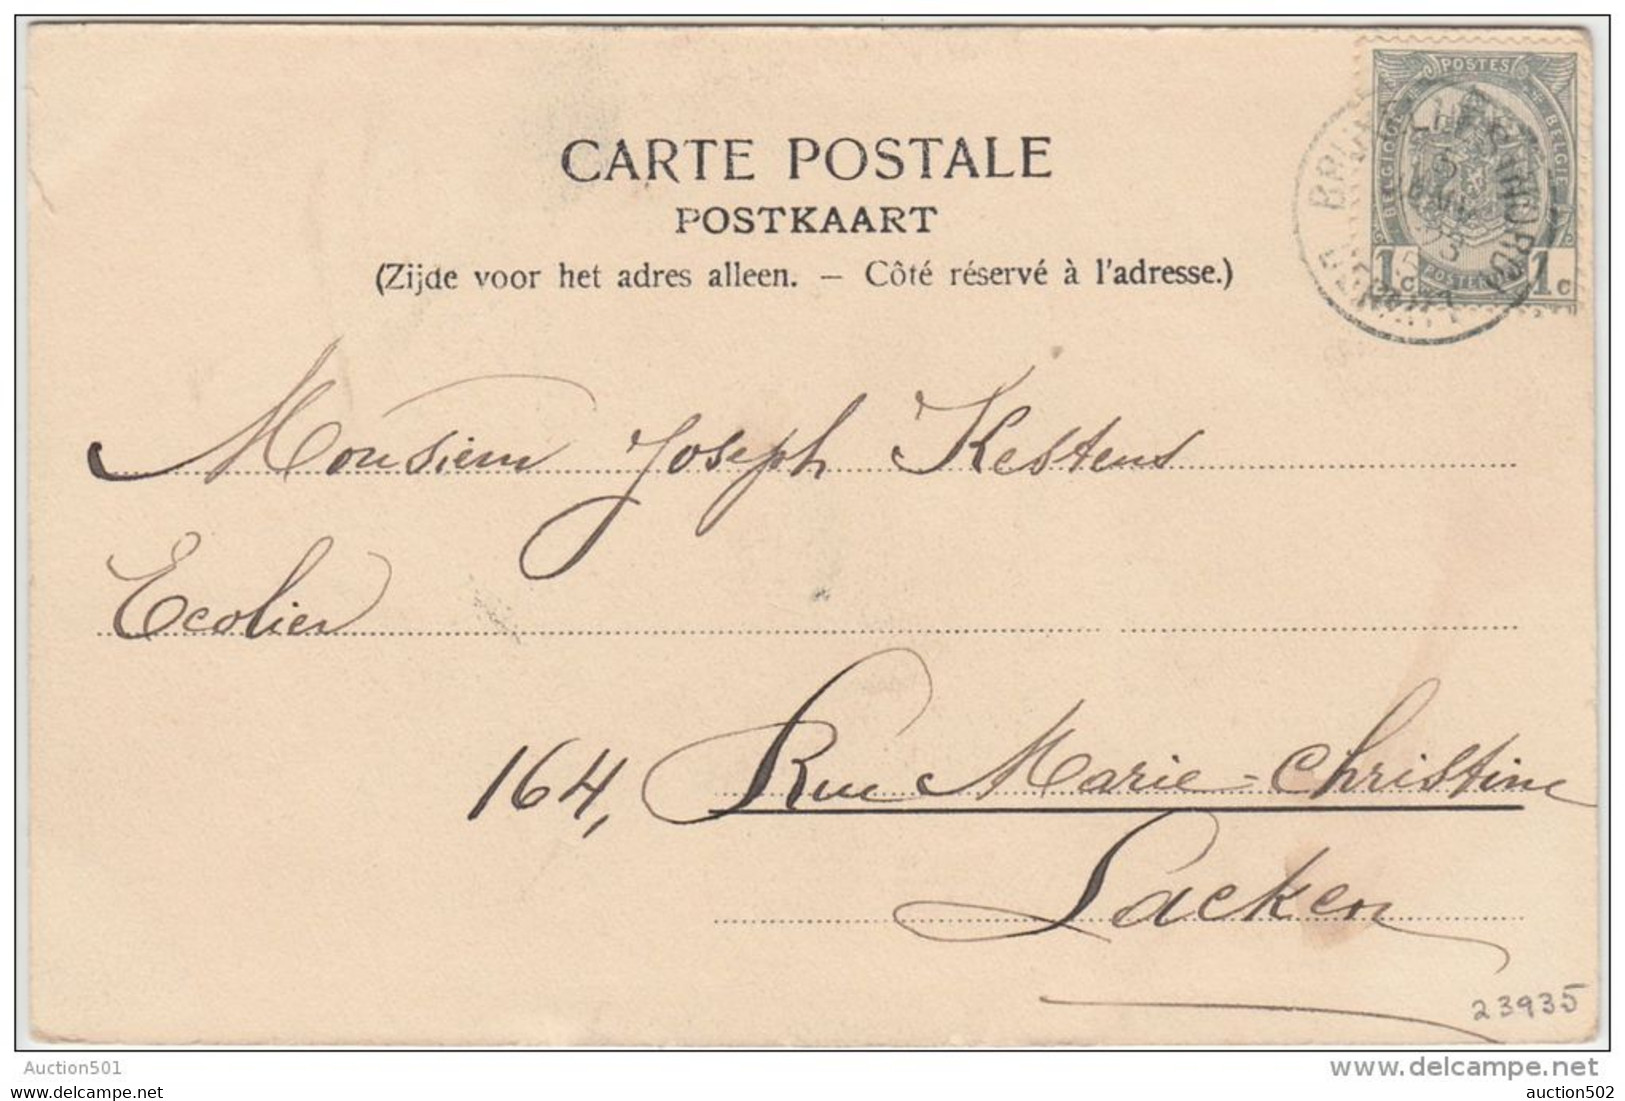 POSTES
BELGIQUE
BELGIE
1 c
POSTERIJEN
1 c
CARTE POSTALE
POSTKAART
(Zijde voor het adres alleen. – Côté réservé à l'adresse.)
Monsieur Joseph Kestens
Ecolier
164, Rue Marie-Christine
Laeken
23935
Auction501
www.delcampe.net
auction502